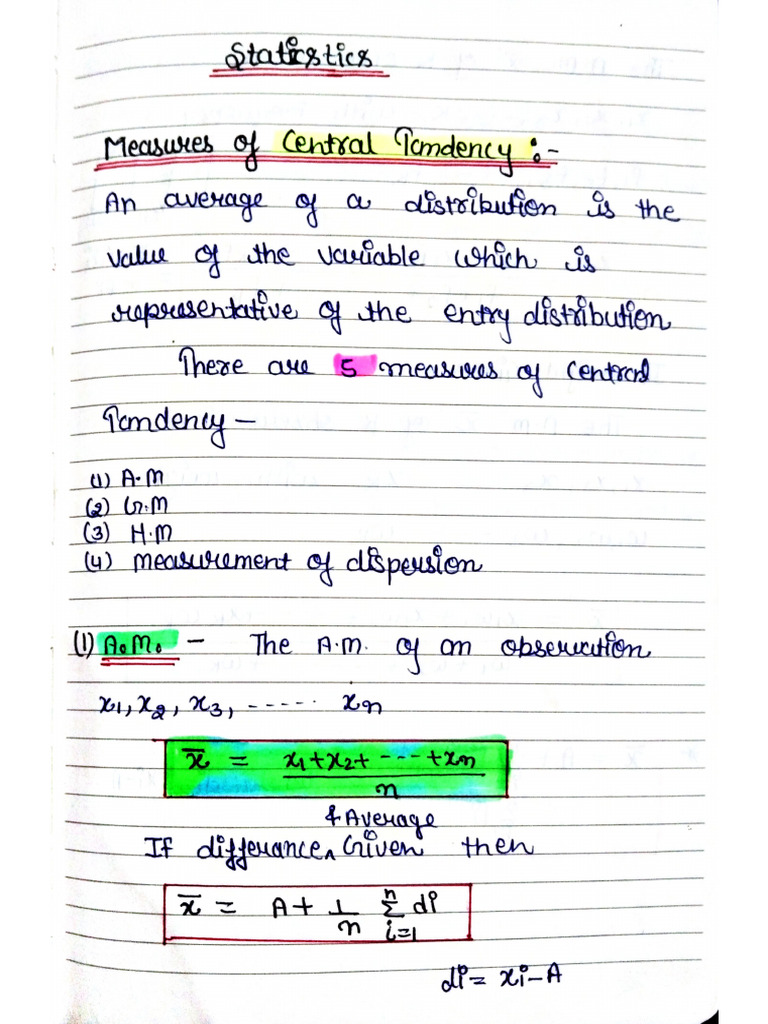 Statistics
Measures of Central Tamdency :-
An average of a distribution is the
value of the variable which is
representative of the entry distribution
There are 5 measures of central
Tamdency –
(1) A.M
(2) G.M
(3) H.M
(4) measurement of dispersion
(1) A.M. – The A.M. of an observation
x₁, x₂, x₃, ------ xₙ
x̄ = (x₁+x₂+ --- +xₙ)/n
& Average
If differance ‸ Given then
x̄ = A + 1/n Σⁿᵢ₌₁ di
di = xi – A